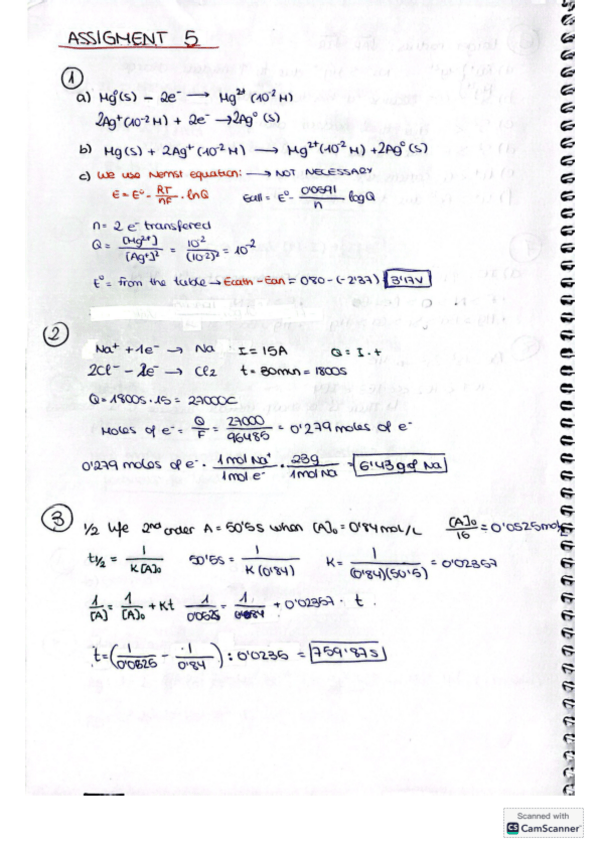 ASSIGMENT 5
①
a) Mg⁰(s) - 2e⁻ → Mg²⁺ (10⁻² M)
2Ag⁺ (10⁻² M) + 2e⁻ → 2Ag⁰ (s)
b) Mg(s) + 2Ag⁺ (10⁻² M) → Mg²⁺ (10⁻² M) + 2Ag⁰ (s)
c) We use Nernst equation: → NOT NECESSARY
E = E⁰ - RT/nF · lnQ Ecell = E⁰ - 0'0591/n log Q
n = 2 e⁻ transfered
Q = [Mg²⁺]/[Ag⁺]² = 10⁻²/(10⁻²)² = 10⁻²
E⁰ = from the table → Ecath - Ean = 0'80 - (-2'37) 3'17V
②
Na⁺ + 1e⁻ → Na I = 15A Q = I · t
2Cl⁻ - 2e⁻ → Cl₂ t = 30min = 1800s
Q = 1800s · 15 = 27000C
Moles of e⁻ = Q/F = 27000/96485 = 0'279 moles of e⁻
0'279 moles of e⁻ · 1 mol Na⁺/1 mol e⁻ · 23g/1 mol Na = 6'43 g of Na
③
1/2 life 2nd order A = 50'5s when [A]₀ = 0'84 mol/L [A]₀/16 = 0'0525 mol/L
t1/2 = 1/K[A]₀ 50'5s = 1/K(0'84) K = 1/(0'84)(50'5) = 0'02357
1/[A] = 1/[A]₀ + Kt 1/0'0525 = 1/0'84 + 0'02357 · t
t = (1/0'0525 - 1/0'84) : 0'0235 = 759'87s
Scanned with
CS CamScanner